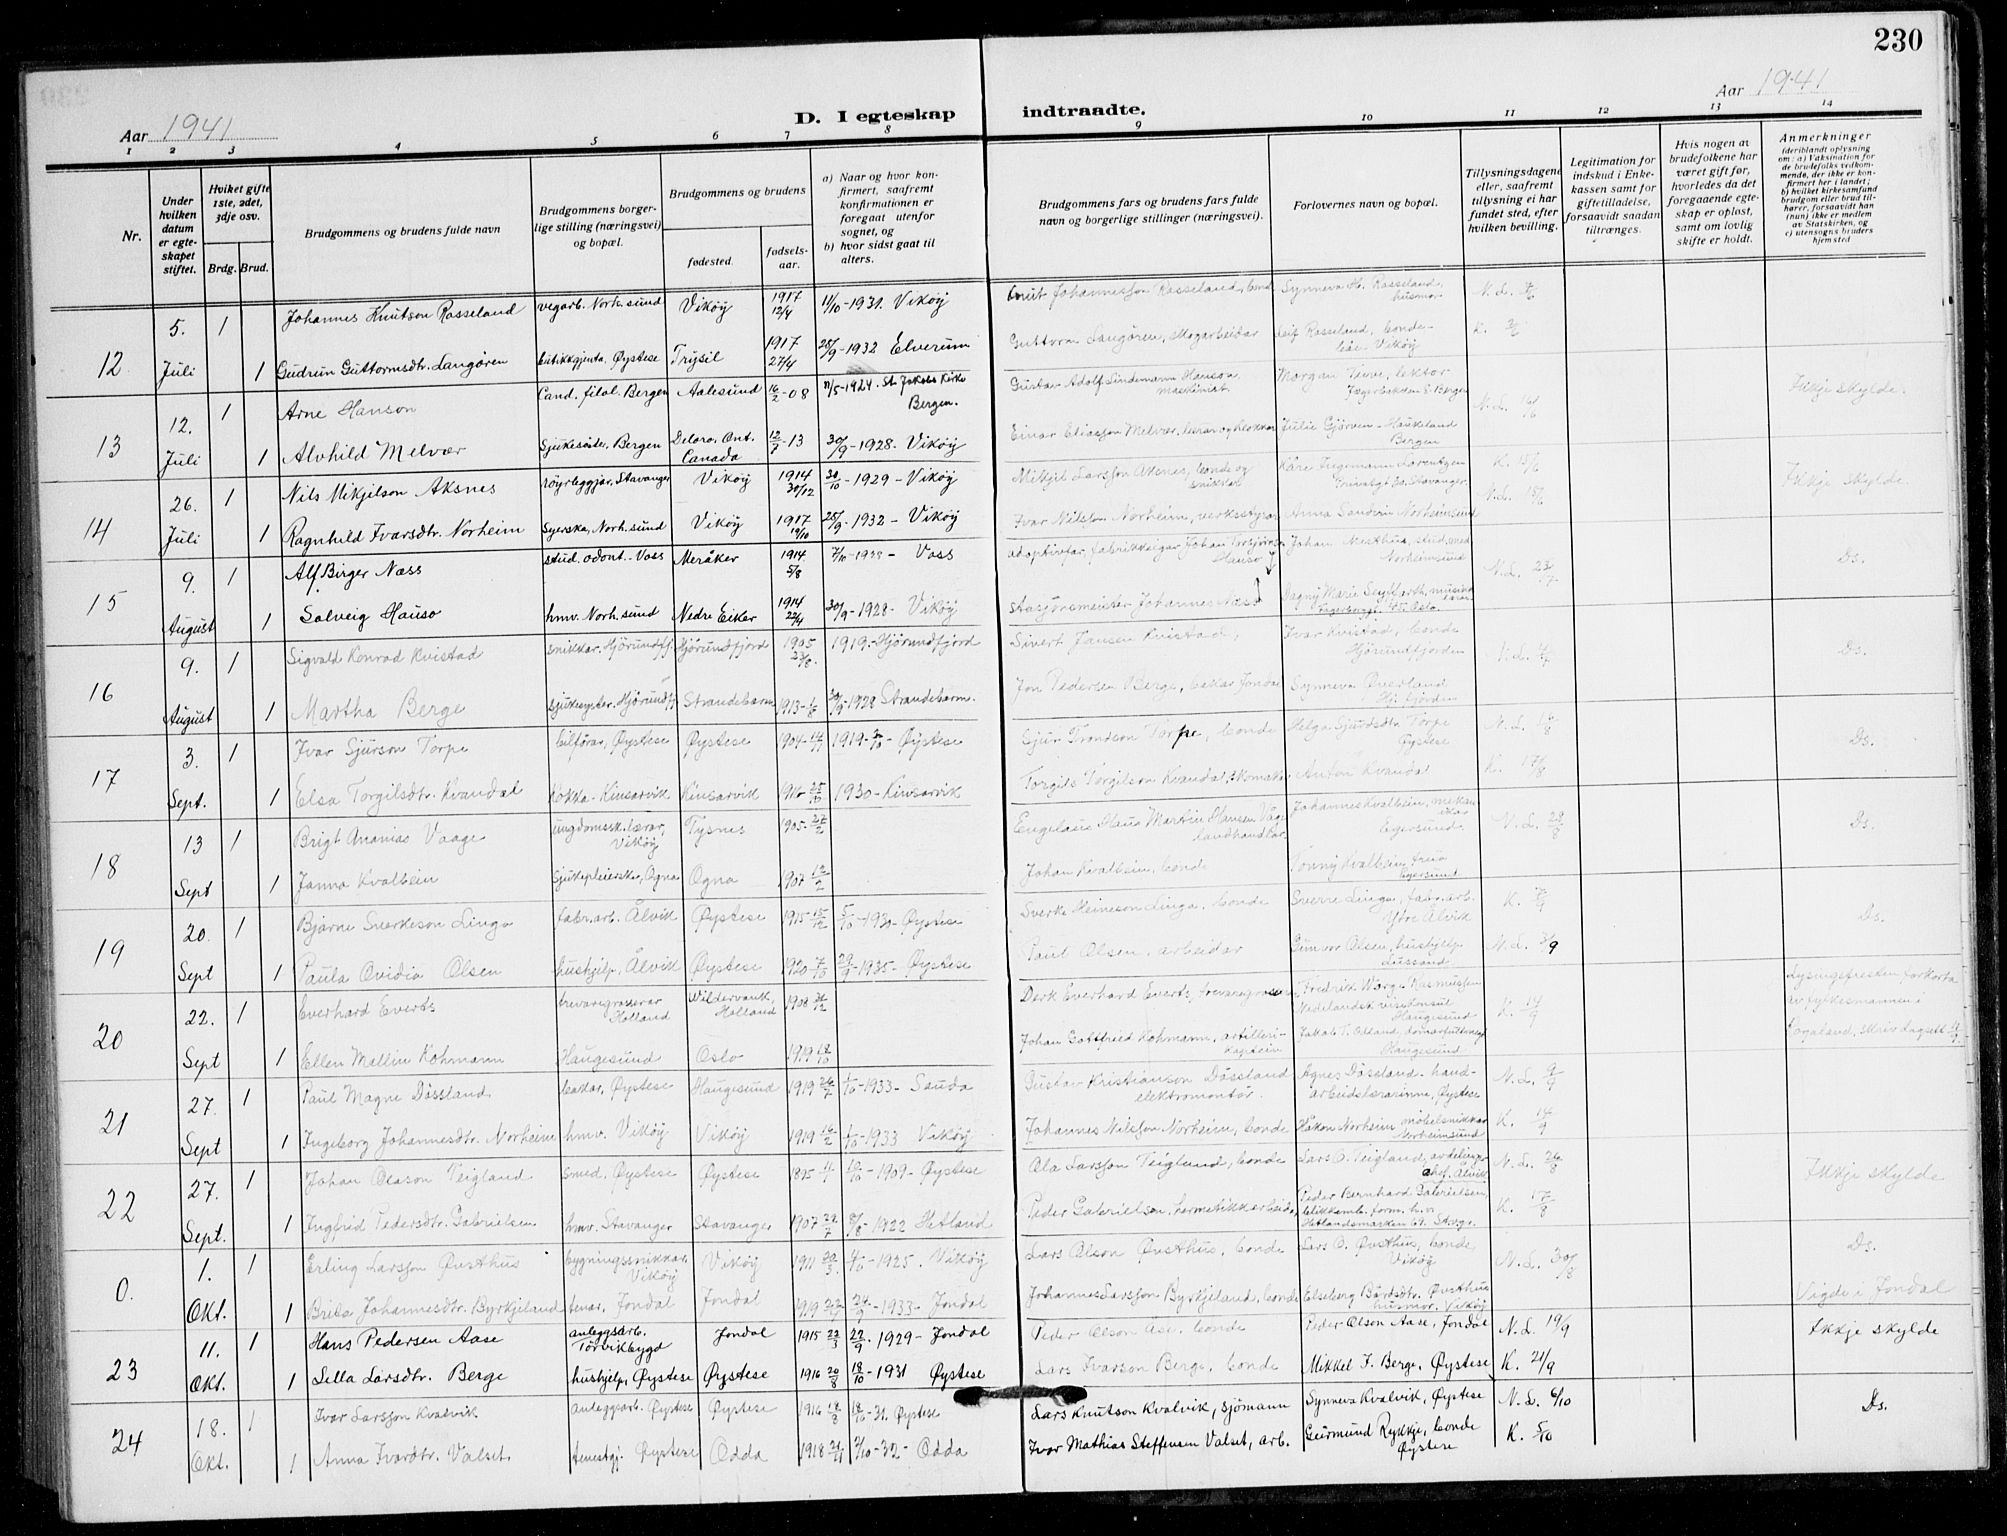 230
Aar 1941
D. I egteskap indtraadte.
Aar 1941
1 2 3 4 5 6 7 8 9 10 11 12 13 14
Nr.
Under hvilken datum er egteskapet stiftet.
Hviket gifte 1ste, 2det, 3dje osv.
Brdg. Brud.
Brudgommens og brudens fulde navn
Brudgommens borgerlige stilling (næringsvei) og bopæl.
Brudgommens og brudens
fødested.
fødselsaar.
a) Naar og hvor konfirmert, saafremt konfirmationen er foregaat utenfor sognet, og
b) hvor sidst gaat til alters.
Brudgommens fars og brudens fars fulde navn og borgerlige stillinger (næringsvei).
Forlovernes navn og bopæl.
Tillysningsdagene eller, saafremt tillysning ei har fundet sted, efter hvilken bevilling.
Legitimation for indskud i Enkekassen samt for giftetilladelse, forsaavidt saadan tiltrænges.
Hvis nogen av brudefolkene har været gift før, hvorledes da det foregaaende egteskap er opløst, samt om lovlig skifte er holdt.
Anmerkninger
(deriblandt oplysning om: a) Vaksination for de brudefolks vedkommende, der ikke er konfirmert her i landet; b) hvilket kirkesamfund brudgom eller brud tilhører, forsaavidt han (hun) ikke er medlem av Statskirken, og c) utensogns bruders hjemsted
12 5. Juli 1 Johannes Knutson Rosseland vegarb. Norh.sund Vikøy 1917 12/4 11/10-1931. Vikøy Knut Johannesson Rosseland, bonde Synneva H. Rosseland, husmor N.L.
1 Gudrun Guttormsdtr. Langören butikkgjenta, Øystese Trysil 1917 27/4 25/9-1932 Elverum Guttorm Langören, skogarbeidar Leif Rosseland, bonde- Vikøy K.
13 12. Juli 1 Arne Hanson Cand. filol. Bergen Aalesund 16/2-08 11/5-1924. St Jakobs Kirke Bergen. Gustav Adolf Lindemann Hanson, maskinist lektor Bergen N.L. 16/6 Ikkje skylde.
1 Alvhild Melvær Sjukesöster, Bergen Deloro, Ont. Canada 12/7-13 30/9-1928. Vikøy Einar Eliasson Melvær, lærar og klokkar Julie Gjörven - Haukeland Bergen
14 26. Juli 1 Nils Mikjelson Aksnes röyrleggjar, Stavanger Vikøy 1914 30/12 30/10-1929- Vikøy Mikjel Larsson Aksnes, bonde og snikkar Kåre Ingemann Lorentzen Stavanger K. 15/6 Ikkje skylde
1 Ragnhild Ivarsdtr. Norheim Syerska, Norh.sund Vikøy 1917 19/10 25/9-1932- Vikøy Ivar Nilsson Norheim, verksstyrar Anna Sandvin Norheimsund N.L. 15/6
15 9. August 1 Alf Birger Næss stud. odont.- Voss Meråker 1914 5/8 Voss adoptivfar, fabrikkeigar Johan Torsjörnsen Hauso Johan Mesthus, stud. med Norheimsund N.L. 23/7 Ds.
1 Solveig Hauso hmv. Norh.sund Nedre Eiker 1914 22/4 30/9-1928- Vikøy Stasjonsmeister Johannes Næss Dagny Marie Oslo
16 9. August 1 Sigvald Konrad Kvistad snikkar, Hjörundfj. Hjörundfjord 1905 23/8. 1919-Hjörundfjord Sivert Jansen Kvistad, Ivar Kvistad, bonde Hjörundfjorden N.L. Ds.
1 Martha Berge sjukesyster, Hjörundfj Strandebarm 1913 - 1928 Strandebarm. Jon Pedersen Berge, bakar Jondal Synneva Øverland Hj. fjorden
17 3. Sept. 1 Ivar Sjurson Torpe bilförar, Øystese Øystese 1904 1919 - Øystese Sjur Trondson Torpe, bonde Helga Sjursdtr. Torpe Øystese N.L. Ds.
1 Elsa Torgilsdtr. Kvandal kokka - Kinsarvik Kinsarvik 1916 25/10 1930 - Kinsarvik Torgils Torgilson Kvandal, skomakar Anton Kvandal K. 17/8
18 13 Sept 1 Brigt Ananias Vaage ungdomssk.lærar, Vikøy Tysnes 1905 - 27/2 Engelaus Haus Martin Hansen Våge landhandlar. Johannes Kvalbein, mekanikar Egersund N.L. 28/8 Ds.
1 Janna Kvalbein Sjukepleierske, Ogna Ogna 1907 12/2 Johan Kvalbein, bonde Kvalbein, frue Egersund
19 20. Sept 1 Bjarne Sverkeson Linga fabr.arb. Ålvik Øystese 1915 - 15/12 5/10-1930- Øystese Sverke Heineson Linga, bonde Sverre Linga, fabr. arb. Ytre Ålvik K. Ds.
1 Paula Ovidia Olsen hushjelp, Ålvik Øystese 1920 - 7/10 29/9-1935- Øystese Paul Olsen, arbeidar Gunvor Olsen, hushjelp N.L. 3/9
20 22. Sept 1 Everhard Everts trevaregrosserar Holland Wildervank, Holland 1908 Derk Everhard Everts, trevaregrosserar Fredrik Rasmussen Nederlandsk visekonsul Haugesund K. 14/9 Lysingsfristen forkorta av fylkesmannen i Rogaland,
1 Ellen Mallin Kohmann Haugesund Oslo 1919 18/10 Johan Gottfried Kohmann, artillerikaptein Haugesund
21 27. Sept 1 Paul Magne Dössland bakar, Øystese Haugesund 1919 1/10-1933- Sauda Gustav Kristianson Dössland elektromontör. Agnes Dössland - handarbeidslærarinne, Øystese N.L. 9/9
1 Ingeborg Johannesdtr. Norheim hmv. Vikøy Vikøy 1919 16/2 1/10-1933 Vikøy Johannes Nilsson Norheim, bonde Håkon Norheim möbelsnikkar Norheimsund K. 14/9
22 27. Sept. 1 Johan Olason Teigland smed, Øystese Øystese 1895 - 1909 - Øystese Ola Larsson Teigland, bonde Lars O. Teigland, avdelingschef. Ålvik N.L. 26/8 Ikkje skylde
1 Ingfrid Pedersdtr. Gabrielsen hmv. Stavanger Stavanger 1907 22/7 1922 Hetland Peder Gabrielsen, hermetikkarbeidar Peder Bernhard Gabrielsen, Hetlandsmarken K. 17/8
0. 1. Okt. 1 Erling Larsson Øvsthus bygningssnikkar, Vikøy Vikøy 1911 20/3. 4/10-1925. Vikøy Lars Olson Øvsthus, bonde Lars O. Øvsthus, bonde, Vikøy N.L. 30/8 Ds.
1 Brita Johannesdtr. Byrkjeland tenar, Jondal Jondal 1919 24/9-1933- Jondal Johannes Larsson Byrkjeland, bonde Elseberg Bårdsdtr. Øvsthus husmor. Vikøy Vigde i Jondal
23 11. Okt. 1 Hans Pedersen Aase anleggsarb. Torvikbygd Jondal 1915 22/3 22/9. 1929- Jondal Peder Olson Åse. bonde Peder Olson Aase, Jondal N.L. 19/9 Ikkje skylde
1 Lella Larsdtr. Berge hushjelp, Øystese Øystese 1916 20/8 18/10-1931 Øystese Lars Ivarson Berge, bonde Mikkel I. Berge, Øystese K. 21/9
24 18. Okt. 1 Ivar Larsson Kvalvik anleggsarb. Øystese Øystese 1916 18/8 18/10-31. Øystese Lars Knutson Kvalvik, sjömann Synneva Kvalvik, Øystese N.L. 6/10 Ds.
1 Anna Ivardtr. Valset. tenestgj. Øystese Odda 1918 2/10-32- Odda Ivar Mathias Steffensen Valset, arb. Geirmund Rykkje, bonde Øystese K. 5/10